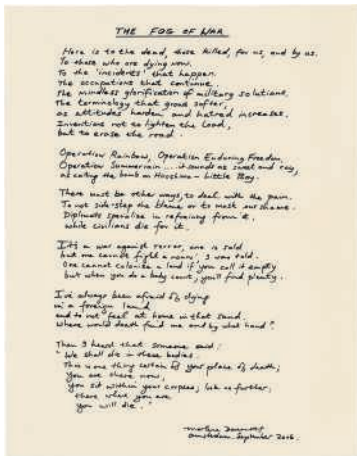 THE FOG OF WAR
Here is to the dead, those killed, for us, and by us.
To those who are dying now.
To the 'incidents' that happen.
The occupations that continue.
The mindless glorification of military solutions.
The terminology that grows softer,
as attitudes harden and hatred increases.
Inventions not to lighten the load,
but to erase the road.
Operation Rainbow, Operation Enduring Freedom,
Operation Summerrain.... it sounds as sweet and
as calling the bomb on Hiroshima – Little Boy.
There must be other ways, to deal with the pain.
To not side-step the blame or to mask our shame.
Diplomats specialize in refraining from it,
while civilians die for it.
It's a war against terror, one is told
but 'one cannot fight a noun', I was told.
One cannot colonize a land if you call it empty
but when you do a body count, you'll find plenty.
I've always been afraid of dying
in a foreign land
and to not feel at home in that sand.
Where would death find me and by what hand?
Then I heard that someone said:
"We shall die in these bodies.
This is one thing certain of your place of death;
You are there now,
you sit within your corpses; look no further;
there where you are
you will die."
Marlene Dumas
Amsterdam September 2006.